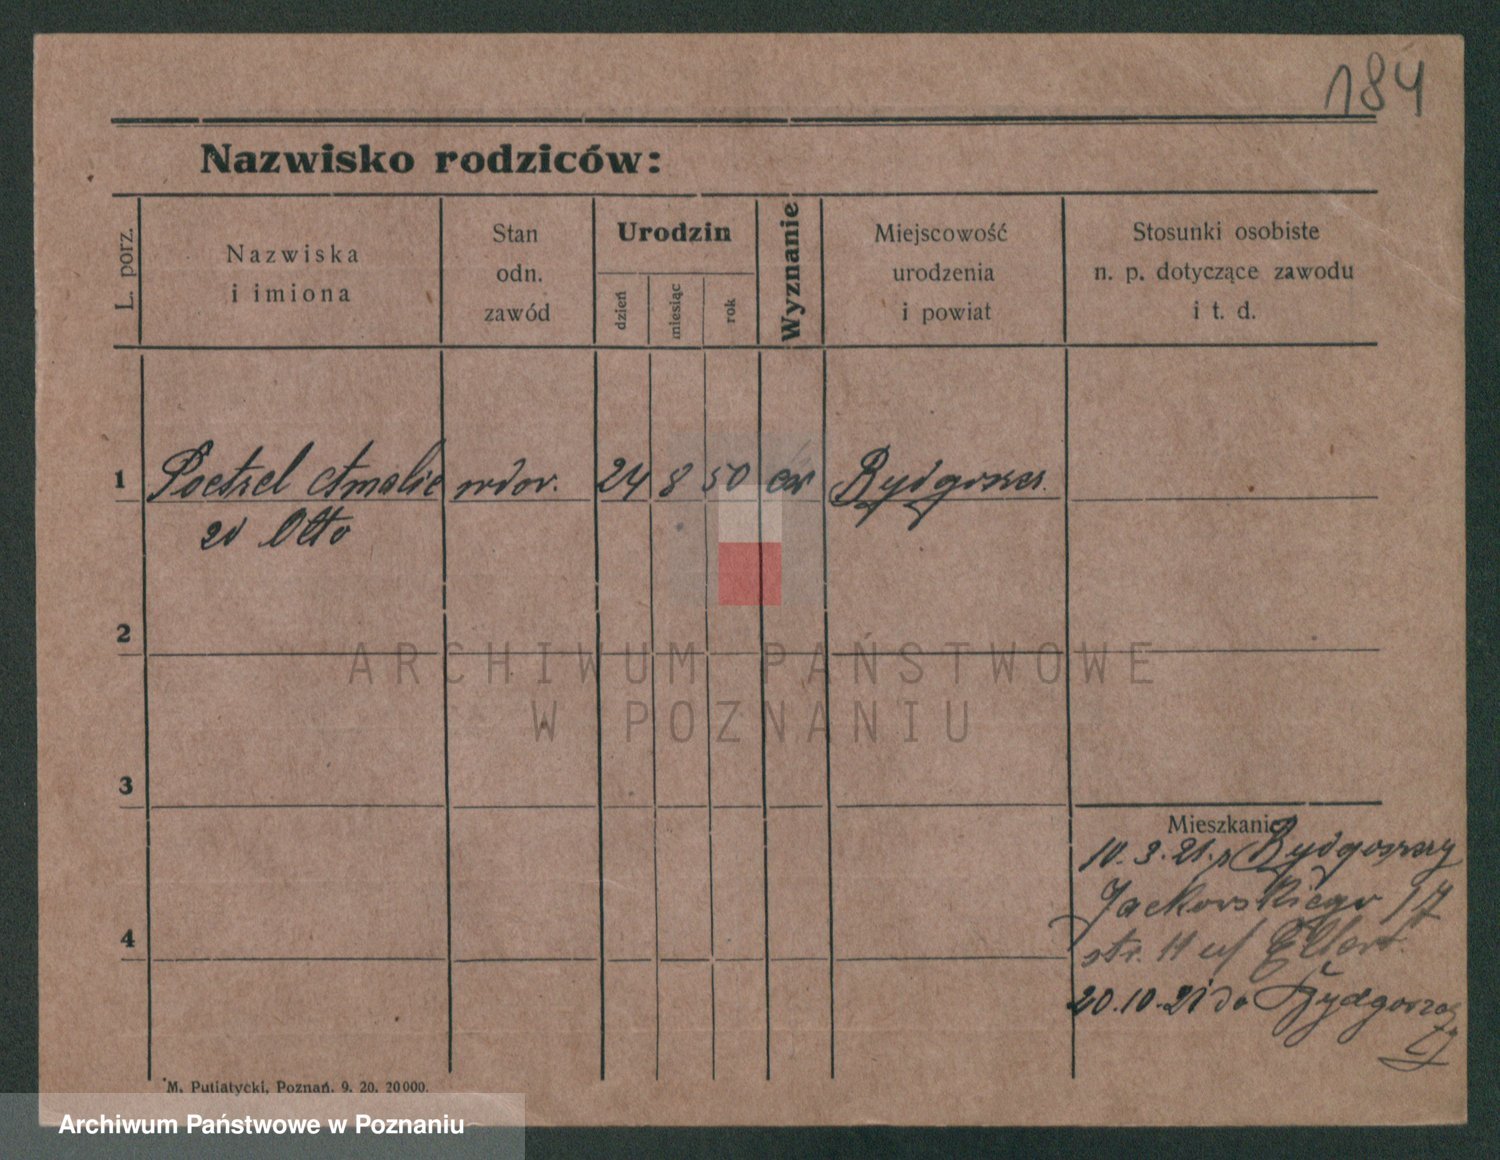 184
Nazwisko rodziców:
L. porz.
Nazwiska
i imiona
Stan
odn.
zawód
Urodzin
dzień
miesiąc
rok
Wyznanie
Miejscowość
urodzenia
i powiat
Stosunki osobiste
n. p. dotyczące zawodu
i t. d.
1 Poetzel Amalie wdow. 24 8 50 ew Bydgoszcz
Otto
2
3
4
Mieszkanie
10.3.21. z Bydgoszczy
Jackowskiego 17
str. 11 u/
20.10.21 do Bydgoszczy
M. Putiatycki, Poznań. 9. 20. 20000.
ARCHIWUM PAŃSTWOWE
W POZNANIU
Archiwum Państwowe w Poznaniu